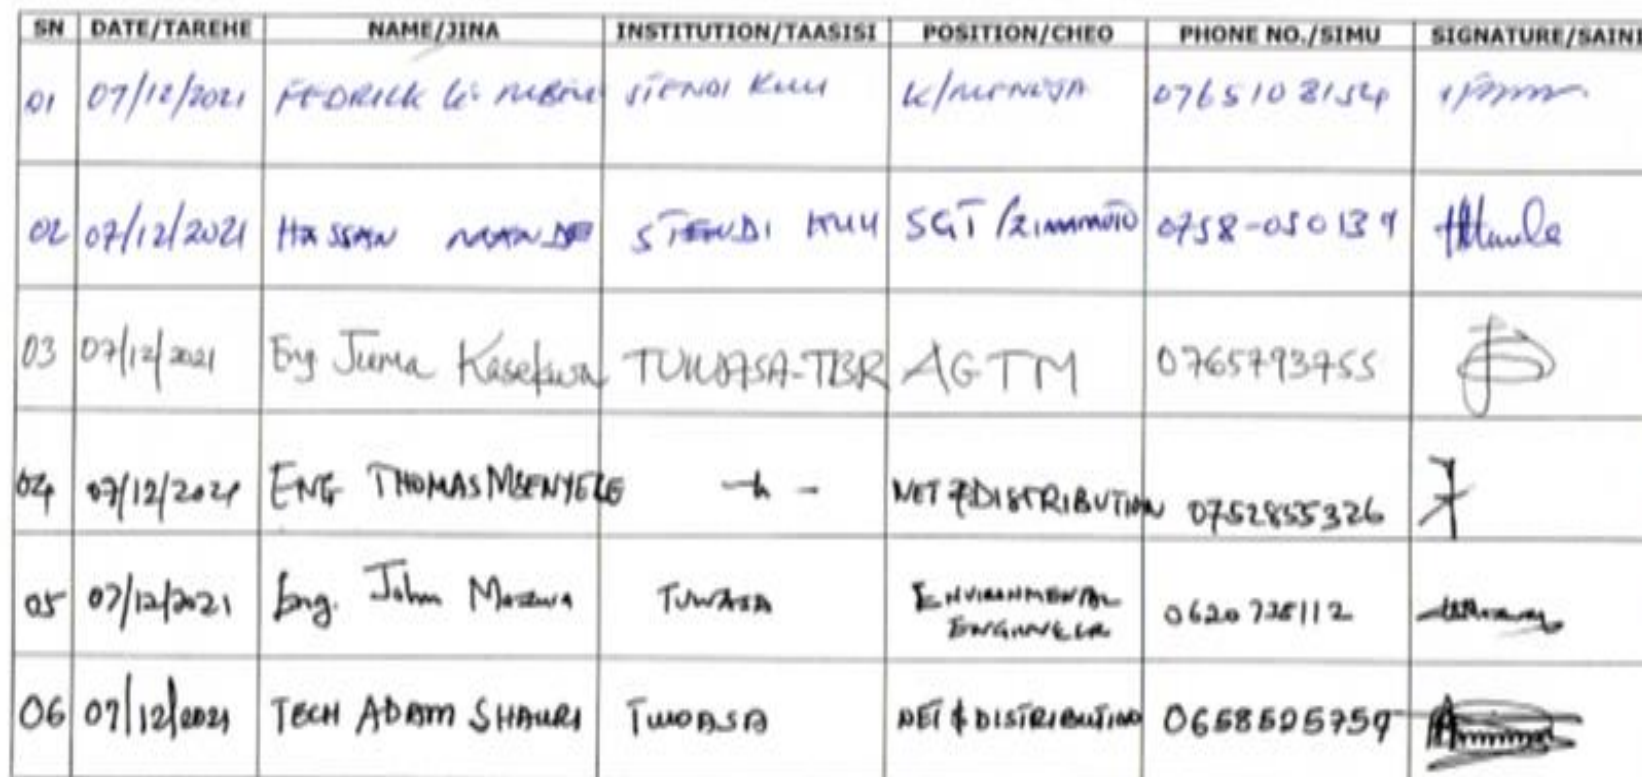 SN DATE/TAREHE NAME/JINA INSTITUTION/TAASISI POSITION/CHEO PHONE NO./SIMU SIGNATURE/SAINI
01 07/12/2021 FEDRICK STENDI KUU K/MENEJA
02 07/12/2021 HASSAN STENDI KUU SGT/ZIMAMOTO 0758-050139
03 07/12/2021 Eng Juma Kasekwa TUWASA-TBR AGTM 0765793755
04 07/12/2021 ENG THOMAS MSENYELE NET & DISTRIBUTION 0752855326
05 07/12/2021 Eng. John TUWASA ENVIRONMENTAL
ENGINEER
06 07/12/2021 TECH ADAM SHAURI TUWASA NET & DISTRIBUTION 0658525759